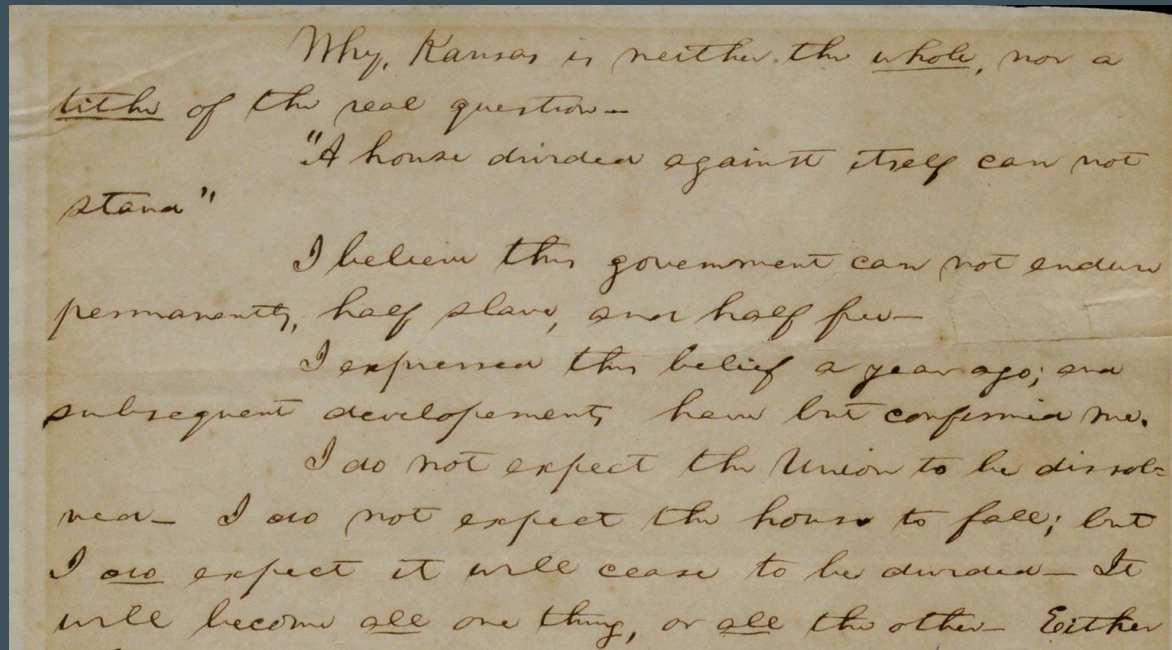 Why, Kansas is neither the whole, nor a
tithe of the real question—
"A house divided against itself can not
stand"
I believe this government can not endure
permanently, half slave, and half free—
I expressed this belief a year ago; and
subsequent developements have but confirmed me.
I do not expect the Union to be dissol=
ved— I do not expect the house to fall; but
I do expect it will cease to be divided— It
will become all one thing, or all the other— Either